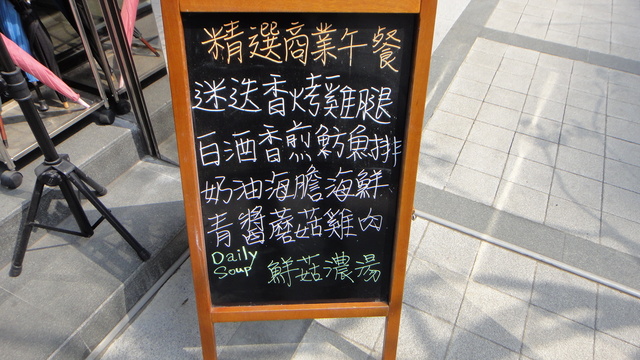 精選商業午餐
迷迭香烤雞腿
白酒香煎魴魚排
奶油海膽海鮮
青醬蘑菇雞肉
Daily Soup 鮮菇濃湯